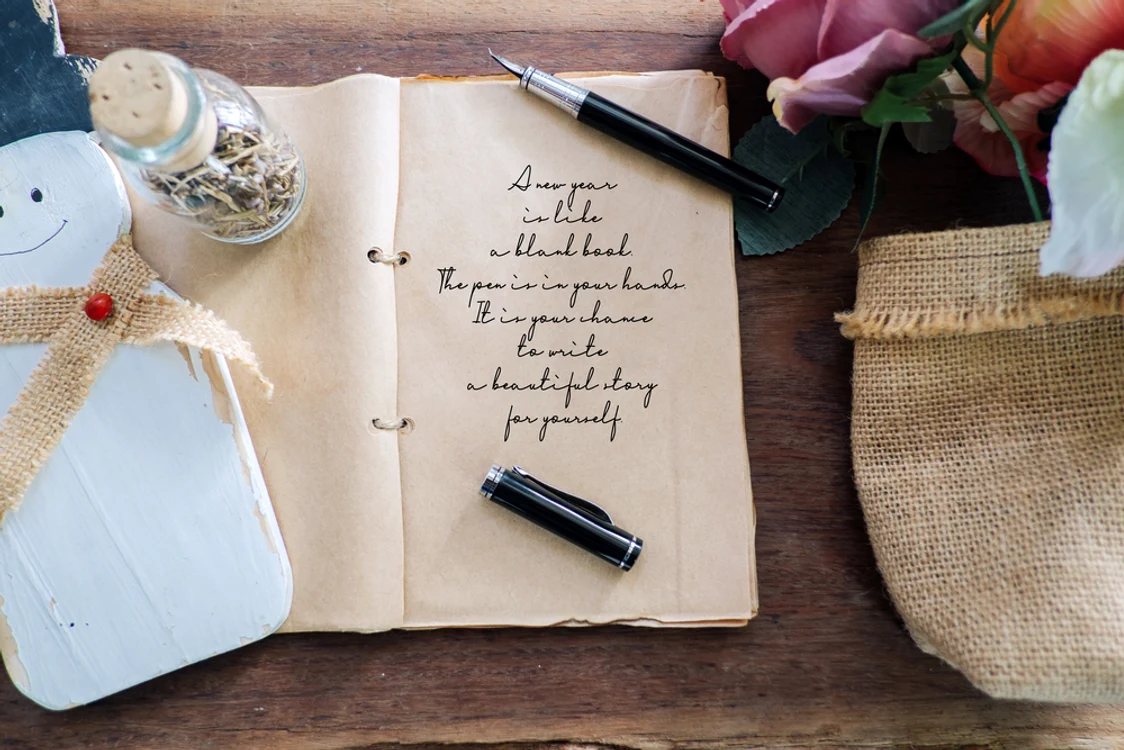 A new year
is like
a blank book.
The pen is in your hands.
It is your chance
to write
a beautiful story
for yourself.